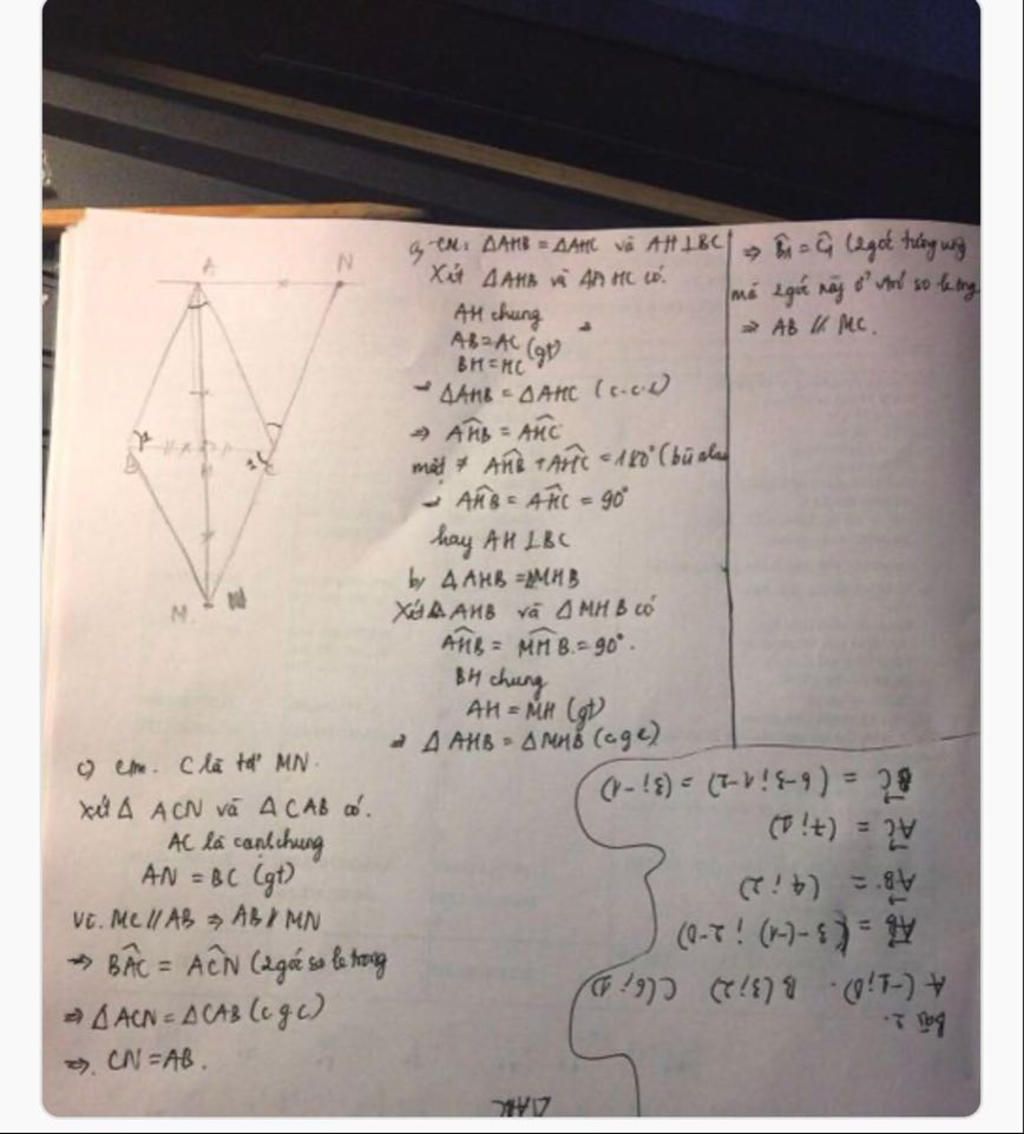 A N
B H C
M
a, CM: ΔAHB = ΔAHC và AH⊥BC
Xét ΔAHB và ΔAHC có.
AH chung
AB = AC
BH = HC (gt)
→ ΔAHB = ΔAHC (c.c.c)
⇒ AHB̂ = AHĈ
mặt ≠ AHB̂ + AHĈ = 180° (bù nhau
→ AHB̂ = AHĈ = 90°
hay AH ⊥ BC
b, ΔAHB = ΔMHB
Xét ΔAHB và ΔMHB có
AHB̂ = MHB̂ = 90°.
BH chung
AH = MH (gt)
⇒ ΔAHB = ΔMHB (c g c)
⇒ B̂1 = Ĉ1 (2 góc tương ứng
mà 2 góc này ở vtrí so le trg
⇒ AB // MC.
c) cm. C là tđ MN.
xét Δ ACN và ΔCAB có.
AC là cạnh chung
AN = BC (gt)
vc. MC // AB ⇒ AB // MN
⇒ BAĈ = ACN̂ (2 góc so le trong
⇒ ΔACN = ΔCAB (c g c)
⇒. CN = AB.
Bài 2.
A (-1; 0). B (3; 2) C (6; 1)
AB = (3 - (-1) ; 2 - 0)
AB = (4 ; 2)
AC = (7; 1)
BC = (6 - 3 ; 1 - 2) = (3; -1)
ΔABC